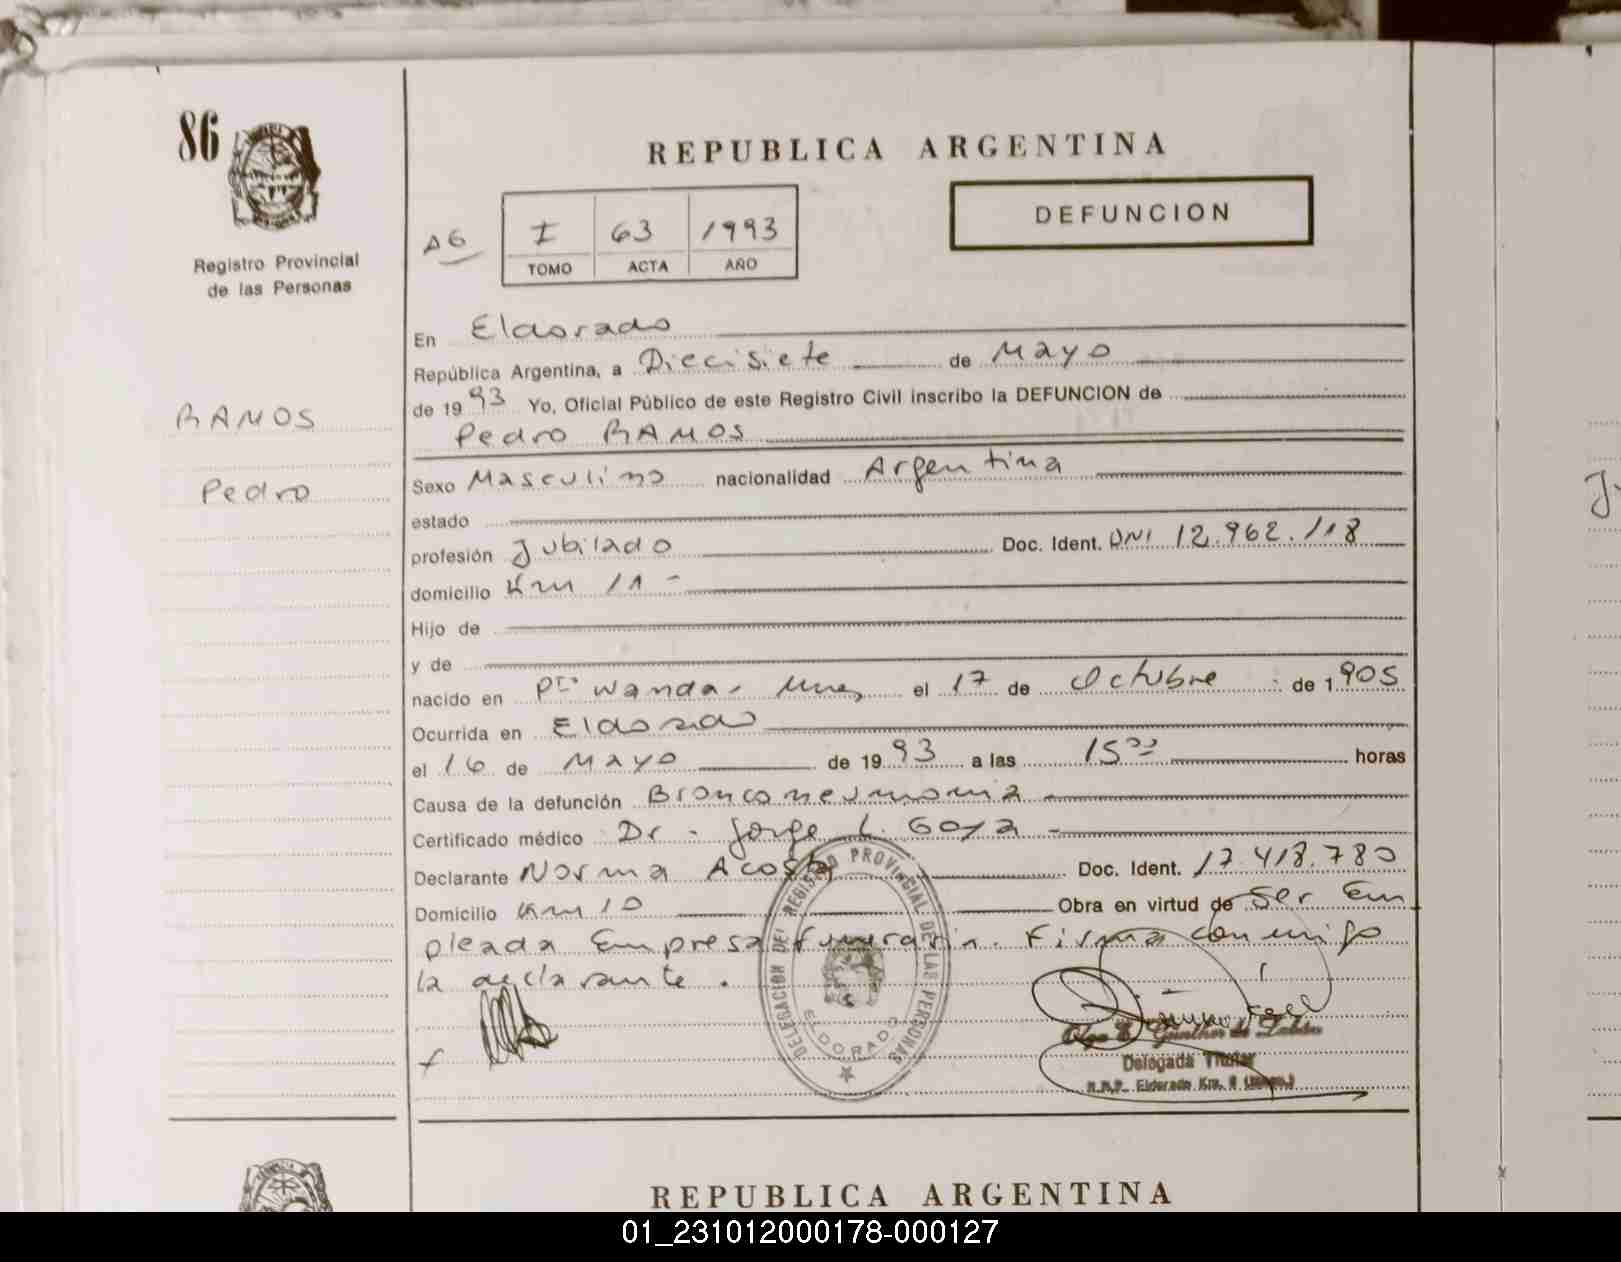 86
REPUBLICA ARGENTINA
DEFUNCION
A6
I 63 1993
TOMO ACTA AÑO
Registro Provincial
de las Personas
En Eldorado
República Argentina, a Diecisiete de Mayo
de 1993 Yo, Oficial Público de este Registro Civil inscribo la DEFUNCION de
RAMOS
Pedro RAMOS
Pedro
Sexo Masculino nacionalidad Argentina
estado
profesión Jubilado Doc. Ident. DNI 12.962.118
domicilio Km 11 -
Hijo de
y de
nacido en Pto Wanda, Mnes el 17 de Octubre de 1905
Ocurrida en Eldorado
el 16 de Mayo de 1993 a las 15 horas
Causa de la defunción Bronconeumonia
Certificado médico Dr. Jorge L. Goya -
Declarante Norma Acosta Doc. Ident. 17.418.780
Domicilio Km 10 Obra en virtud de ser Em
pleada Empresa funeraria. Firma conmigo
la declarante.
DELEGACION DEL REGISTRO PROVINCIAL DE LAS PERSONAS
ELDORADO
Olga E. Günther de
Delegada Titular
R.N.P. Eldorado Km.
REPUBLICA ARGENTINA
01_231012000178-000127